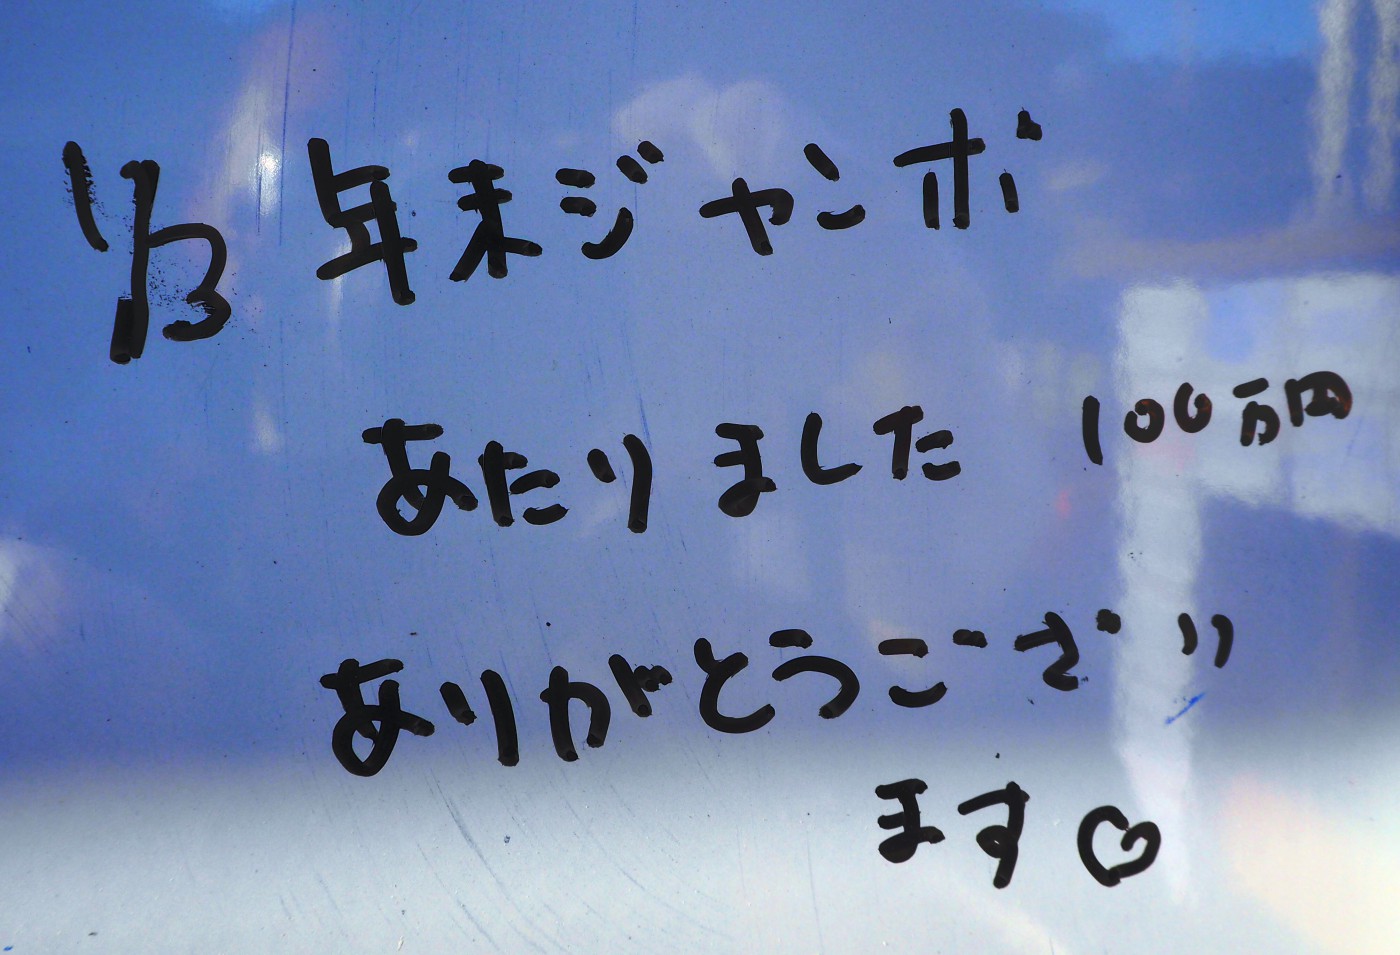 1/3 年末ジャンボ
あたりました 100万円
ありがとうござい
ます♡